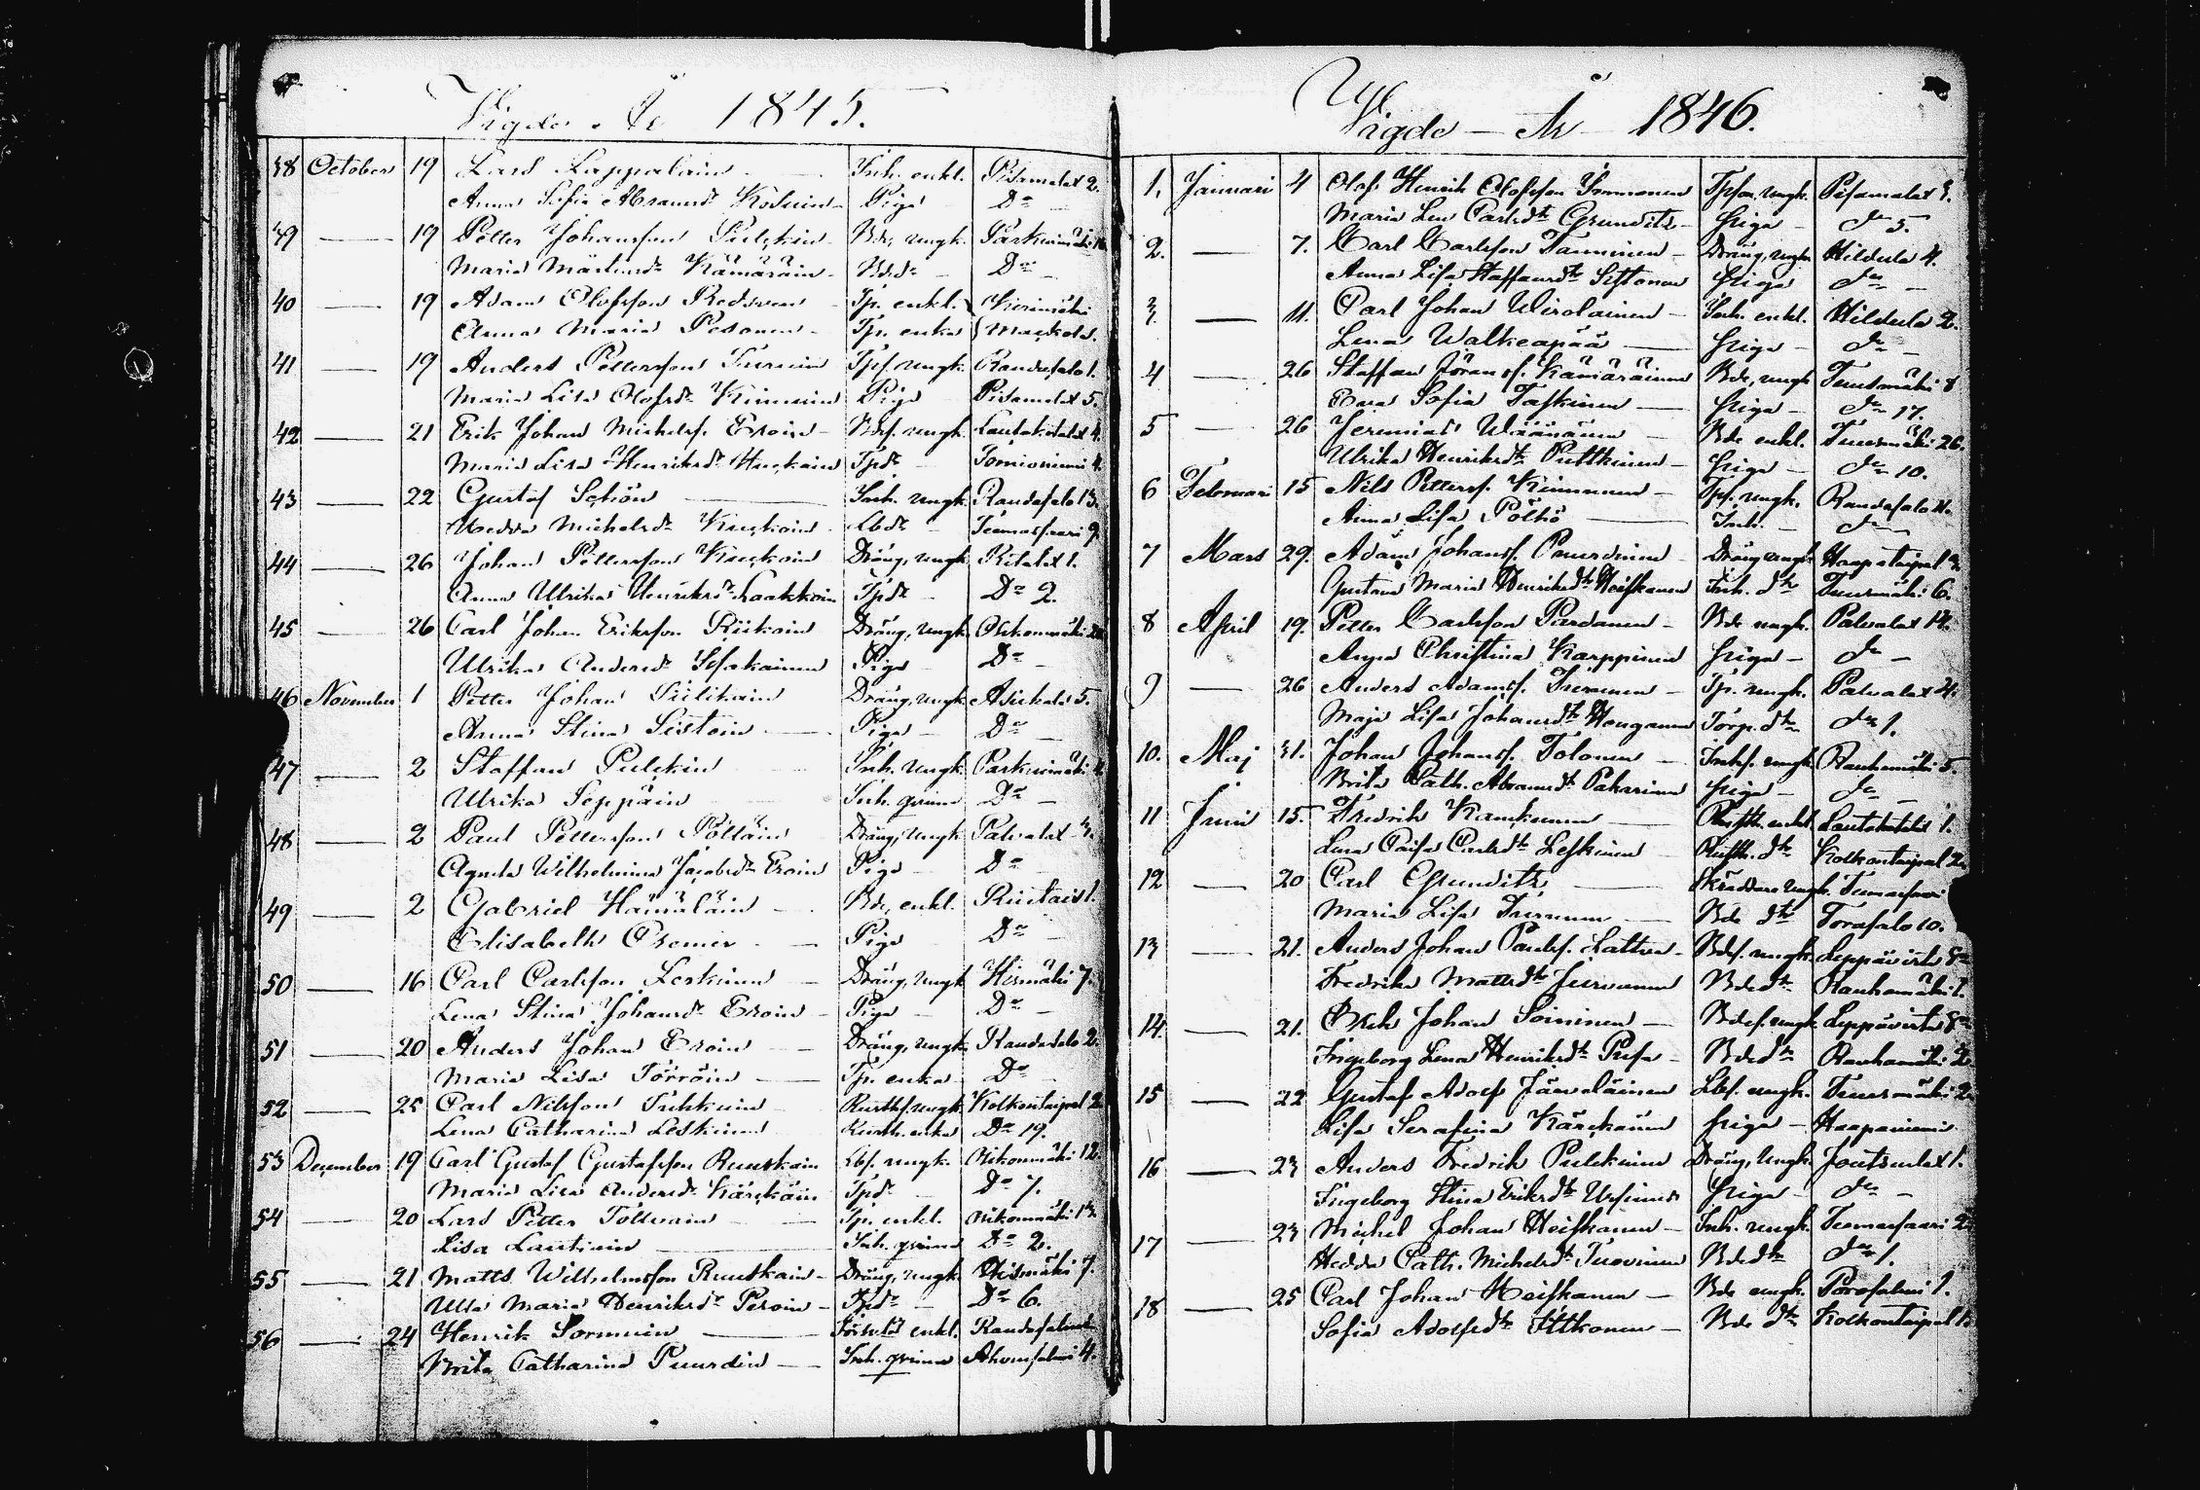 Vigde År 1845.
38 October 19 Lars Lappalain Inh. enkl. Pisamalax 2.
Anna Sofia Abramsdr Kosuin Piga Do
39 — 19 Petter Johansson Pulckin Bde, ungk. Parkuimäki
Maria Mårtensdr Kämäräin Bdedr Do
40 — 19 Adam Olofsson Redsven Tp. enkl. Kerimäki
Anna Maria Pesonen Tp. enka
41 — 19 Anders Pettersson Turuin Tpf ungk. Randasalo 1.
Maria Lisa Olofsdr Kinnuin Piga Pisamalax 5.
42 — 21 Erik Johan Michelss. Eroin Bdf. ungk. Lautakotalax 4.
Maria Lisa Henriksdr Huckain Tpdr Tornioniemi 4.
43 — 22 Gustaf Schön Inh. ungk. Randasalo 13.
Hedda Michelsdr Kuckoin Lbdr Tuemassaari 9.
44 — 26 Johan Pettersson Kuckoin Dräng, ungk Ritalax 1.
Anna Ulrika Henriksdr Laakkoin Tpdr Do 2.
45 — 26 Carl Johan Eriksson Riikoin Dräng, ungk.
Ulrika Andersdr Sesakainen Piga Do
46 November 1 Petter Johan Siilikain Dräng, ungk. 5.
Anna Stina Sistoin Piga Do
47 — 2 Staffan Pulckin Inh. ungk. Parkuimäki 4.
Ulrika Seppäin Inh. qvinna Do
48 — 2 Paul Pettersson Pölläin Dräng, ungk. Palvalax
Agneta Wilhelmina Jacobsdr Eroin Piga Do
49 — 2 Gabriel Hämäläin Bde, enkl. 1.
Elisabeth Cremer Piga Do
50 — 16 Carl Carlsson Leskinen Dräng, ungk Hirvimäki 7.
Lena Stina Johansdr Eroin Piga Do
51 — 20 Anders Johan Eroin Dräng, ungk. Randasalo 2.
Maria Lisa Törröin Tp. enka Do
52 — 25 Carl Nilsson Suhkuin ungk. Kolkontaipal 2
Lena Catharina Leskinen enka Do 19.
53 December 19 Carl Gustaf Gustafsson Ruuskain Lbf. ungk. Nikonmäki 12.
Maria Lisa Andersdr Kärckäin Tpdr Do 7.
54 — 20 Lars Petter Tölvain Tp. enkl. Nikonmäki 13.
Lisa Lautiain Inh. qvinna Do 2.
55 — 21 Matts Wilhelmsson Ruuskain Dräng, ungk. 7.
Ulla Maria Henriksdr Peroin Tpdr Do 6.
56 — 24 Henrik Sormuin enkl.
Brita Catharina Puurdin Inh. qvinna 4.
Vigde — År 1846.
1. Januari 4 Olof Henrik Olofsson Immonen Tpson, ungk. Pisamalax 3.
Maria Lena Carlsdtr Grunditz piga do 5.
2. — 7. Carl Carlsson Tanninen Dräng, ungk. Hildula 4.
Anna Lisa Staffansdtr Sistonen piga do
3. — 11. Carl Johan Wirolainen Inh. enkl. Hildula 2.
Lena Walkeapää piga do
4 — 26 Staffan Jöranss. Kämäräinen Bde, ungk Tuusmäki 8
Eva Sofia Taskinen piga do 17.
5 — 26 Jeremias Wäänänen Bde enkl. Tuusmäki 26.
Ulrika Henriksdtr Pulkkinen piga do 10.
6 Februari 15 Nils Petterss. Kinnunen Tpf. ungk. Randasalo
Anna Lisa Pölhö Inh. do
7 Mars 29. Adam Johanss. Puurdinen Dräng ungk Haapataipal
Gustava Maria Henriksdtr Heiskanen Inh. dtr Tuusmäki 6.
8 April 19. Petter Carlsson Pardanen Bde ungk. Palvalax 14.
Anna Christina Karppinen piga do
9 — 26 Anders Adamss. Turunen Tp. ungk. Palvalax 4.
Maja Lisa Johansdtr Honganen Torp. dtr do 1.
10. Maj 31. Johan Johanss. Tolonen Inhs. ungk. Rauhamäki 5.
Brita Cath. Abramsdtr Pakarinen piga do
11 Junii 15. Fredrik Kaukunen enkl Lautakotalax 1.
Lena Caisa Carlsdtr Leskinen dtr Kolkontaipal 2.
12 — 20 Carl Grunditz Skräddare ungk. Tuemassaari
Maria Lisa Turunen Bde dtr Torasalo 10.
13 — 21. Anders Johan Paulss. Lattu Bdes. ungk. Leppävirta Sn
Fredrika Mattsdtr Jusvanen Bdedtr Rauhamäki 1.
14. — 21. Erik Johan Soininen Bdes. ungk Leppävirta Sn
Ingeborg Lena Henriksdtr Pusa Bdedtr Rauhamäki 2.
15 — 22 Gustaf Adolf Jäveläinen Lbf. ungk. Tuusmäki 2.
Lisa Serafina Kärckäinen piga Haapaniemi
16 — 23 Anders Fredrik Pulckinen Dräng, ungk. Joutsenlax 1.
Ingeborg Stina Eriksdtr Ursinus piga do
17 — 23 Michel Johan Heiskanen Inh. ungk. Tuemassaari 2.
Hedda Cath. Michelsdtr Turovinen Bdedtr do 1.
18 — 25 Carl Johan Heiskanen Bde ungk. Porosalmi 1.
Sofia Adolfsdtr Ittkonen Bde dtr Kolkontaipal 1.